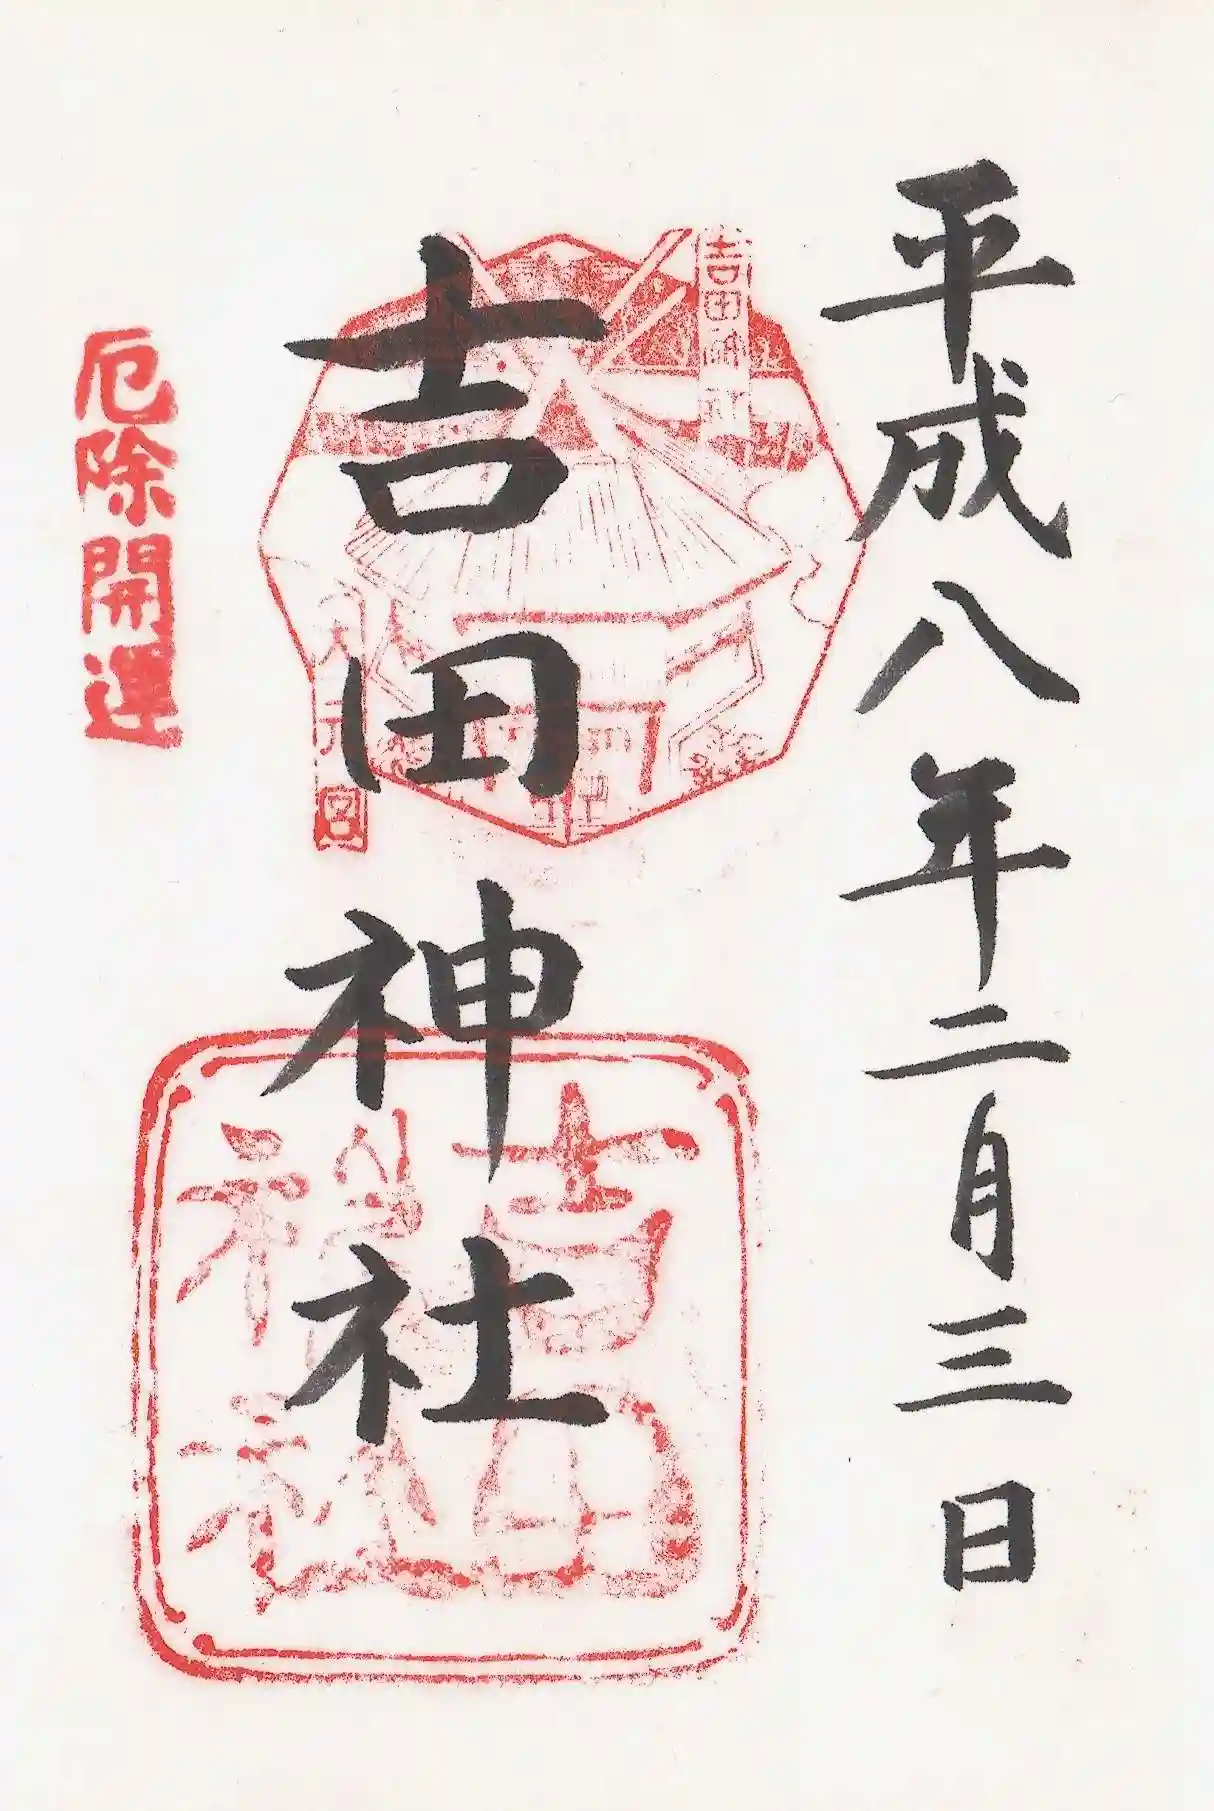 平成八年二月三日
吉田神社
吉田神社
大元宮
吉田神社
厄除開運